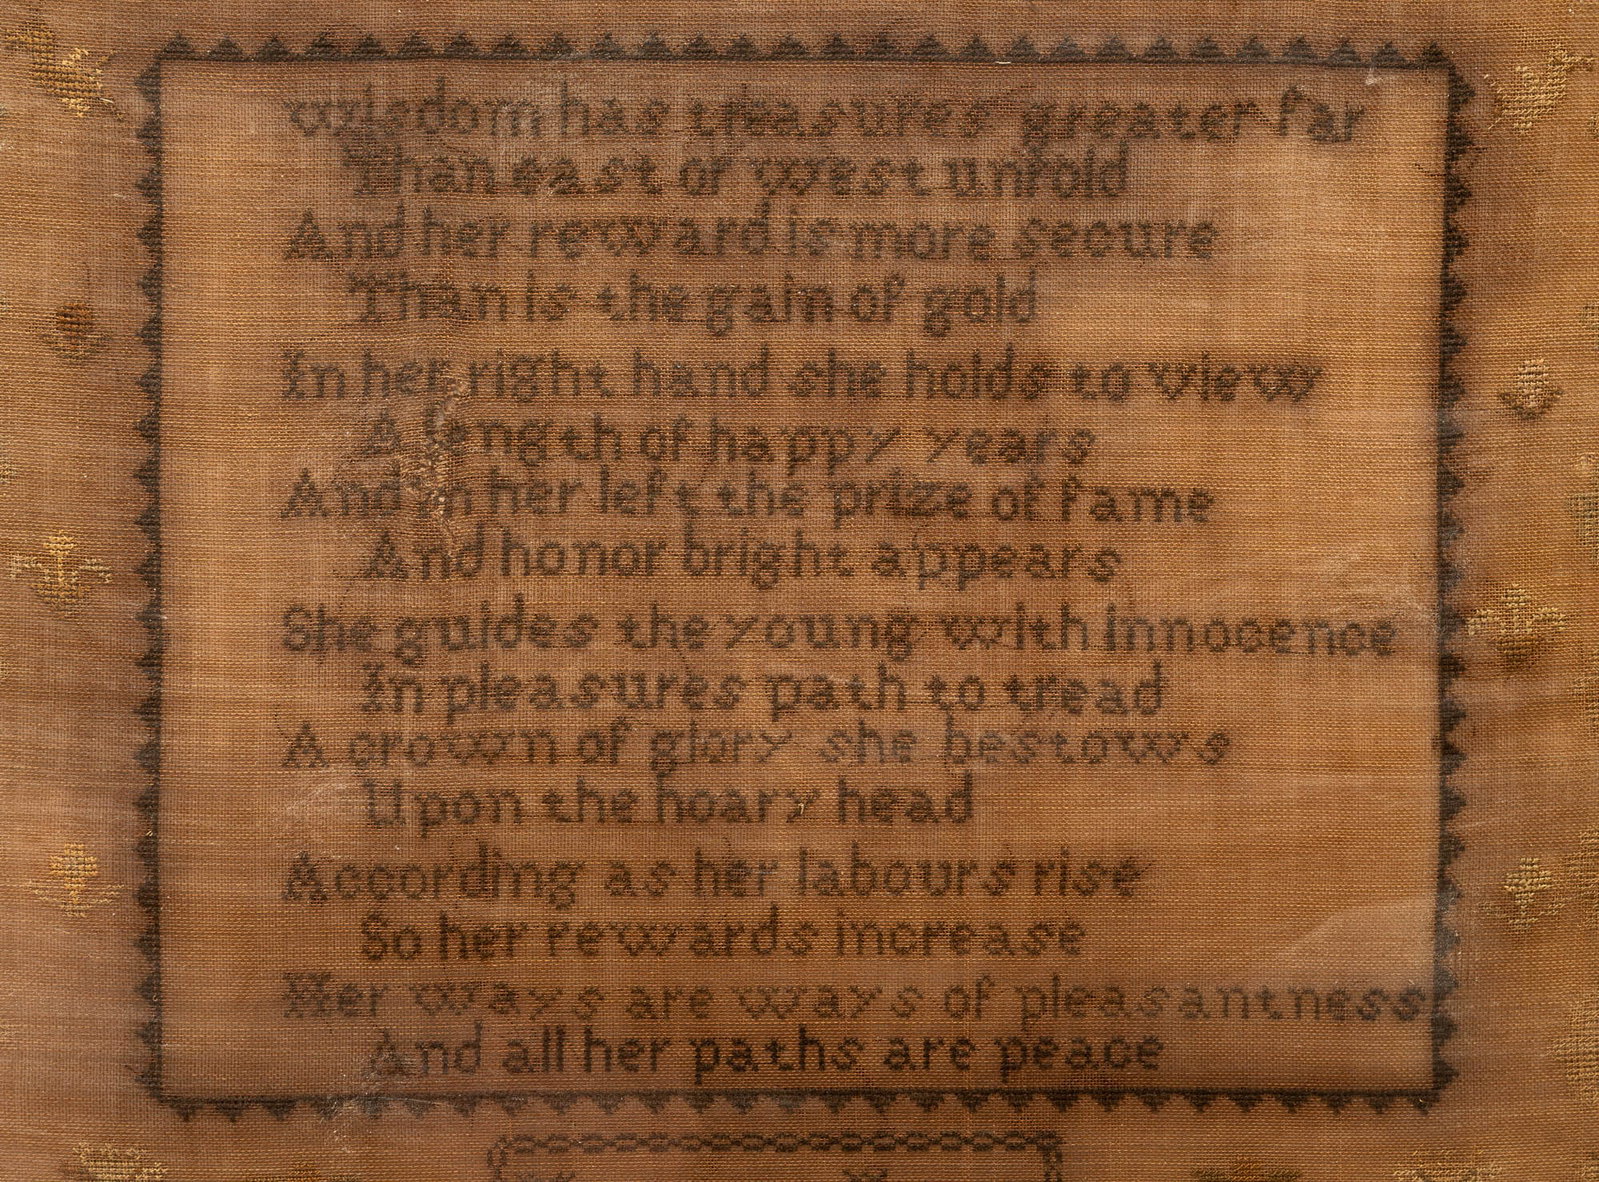 Wisdom has treasures greater far
Than east or west unfold
And her reward is more secure
Than is the gain of gold
In her right hand she holds to view
A length of happy years
And in her left the prize of fame
And honor bright appears
She guides the young with innocence
In pleasures path to tread
A crown of glory she bestows
Upon the hoary head
According as her labours rise
So her rewards increase
Her ways are ways of pleasantness
And all her paths are peace